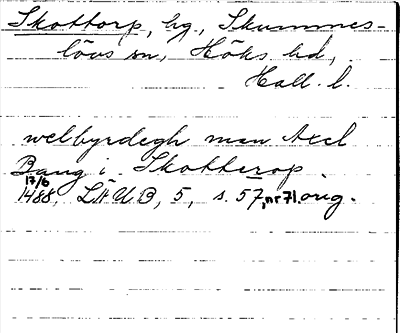 Skottorp, hg., Skummes-
lövs sn, Höks hd,
Hall. l.
welbyrdegh man Axel
Bang i Skotterop.
17/6
1488, LÄUB, 5, s. 57, nr 71. orig.